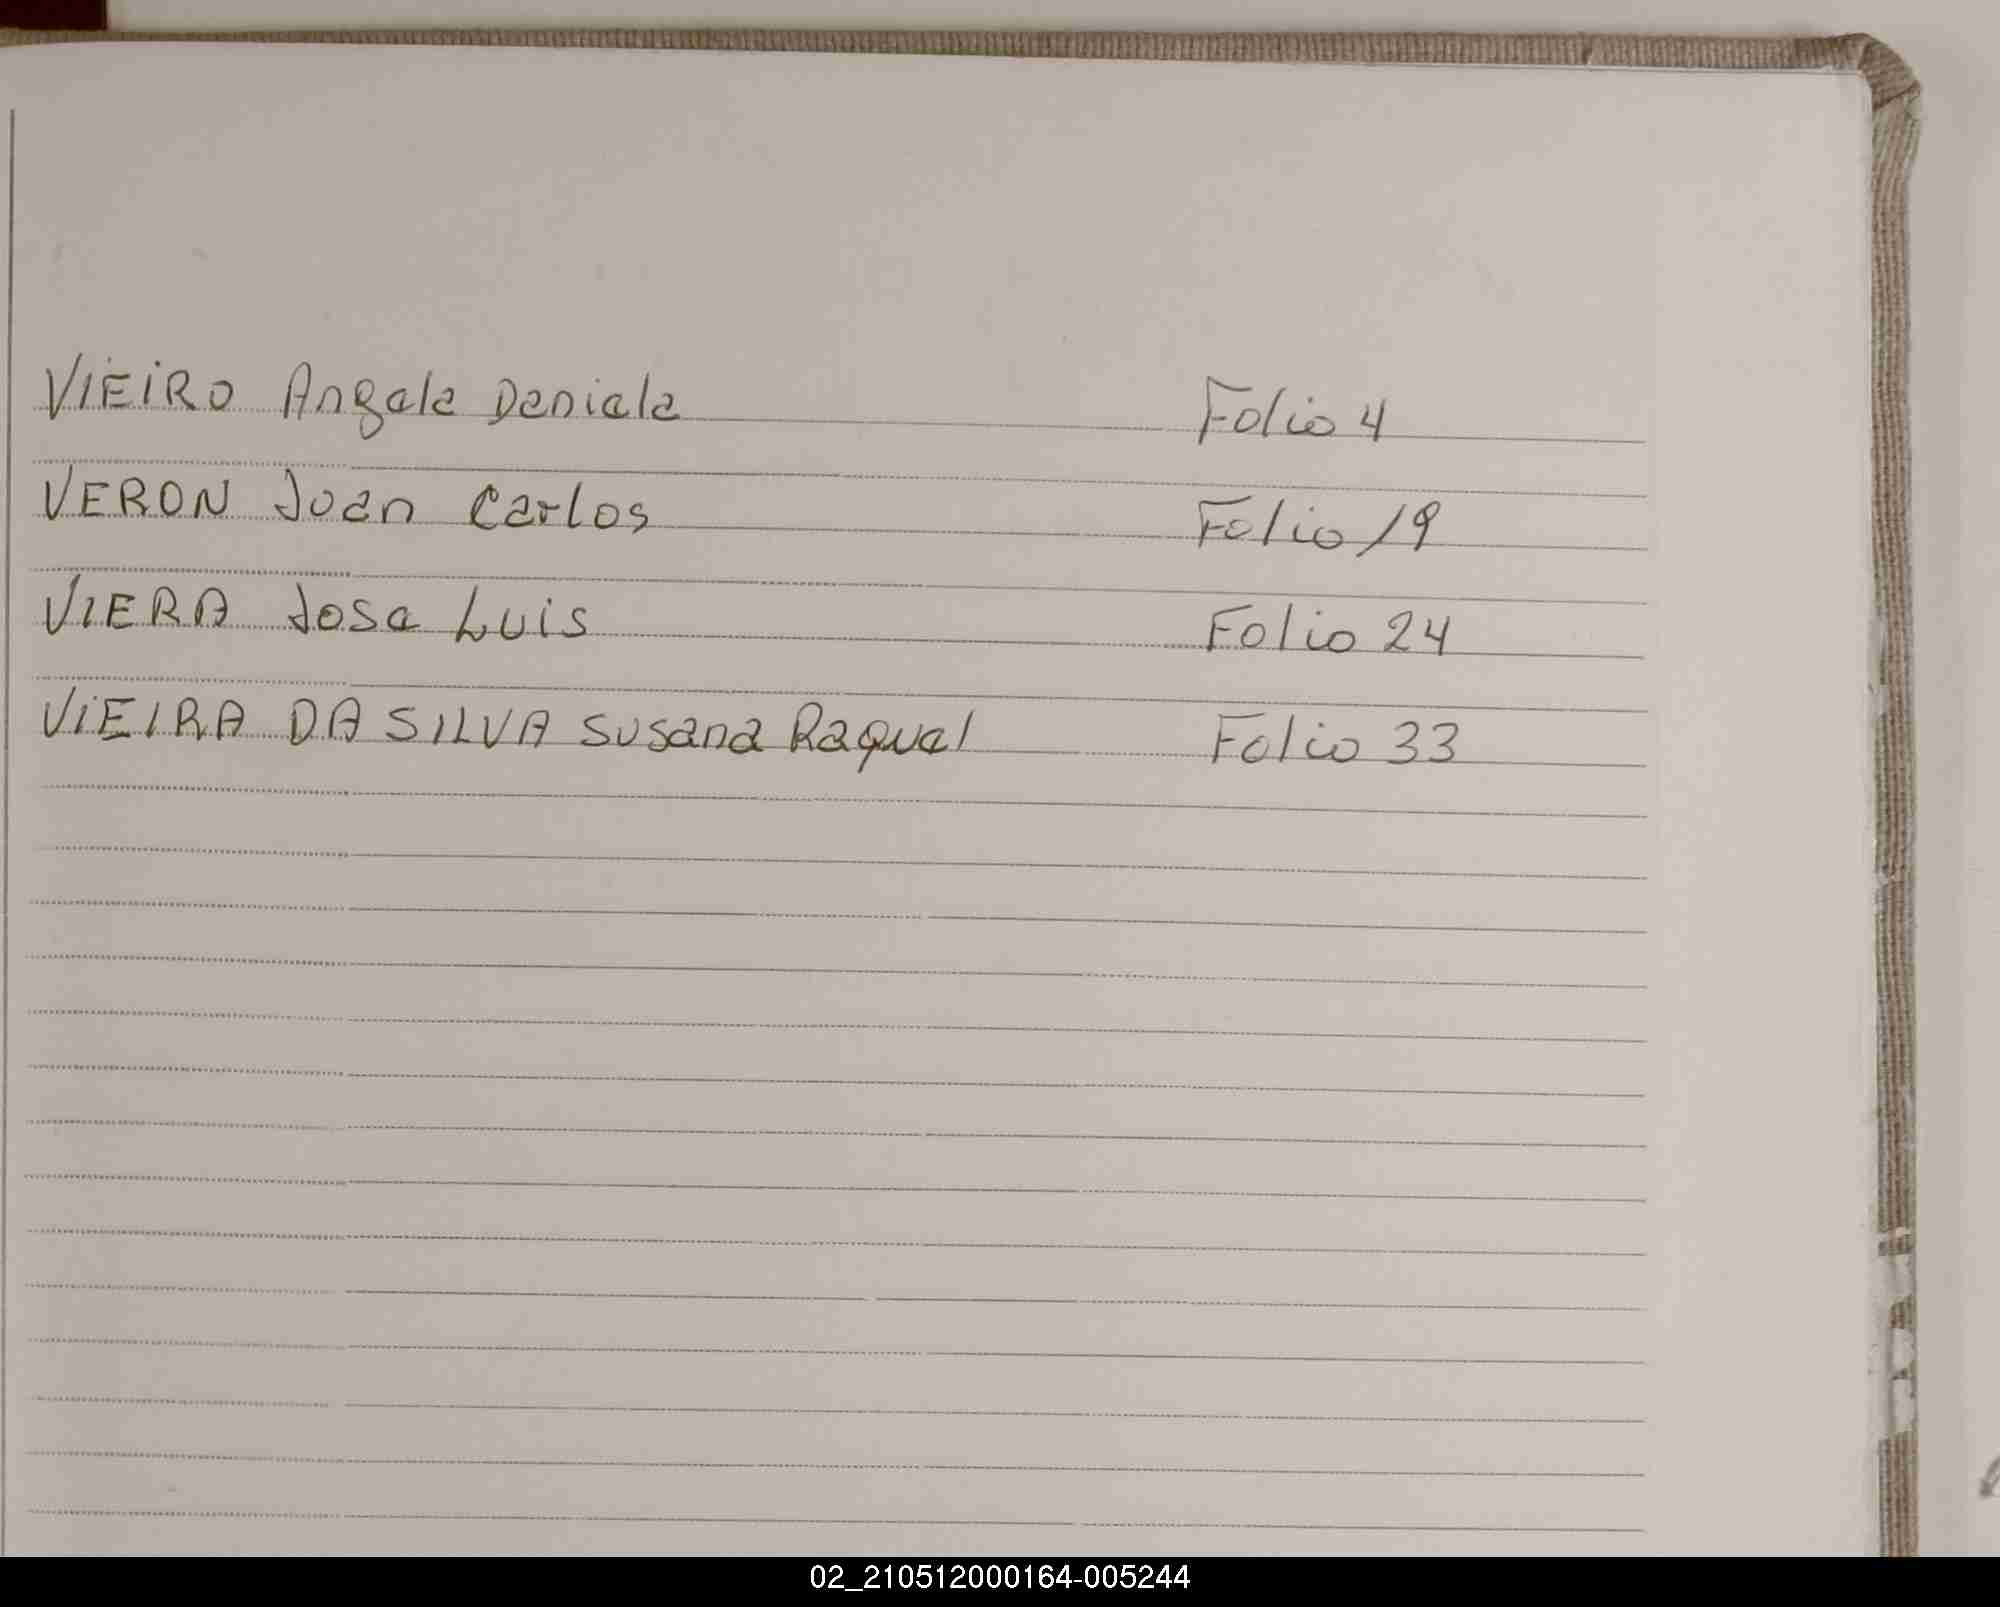 VIEIRO Angela Daniela Folio 4
VERON Juan Carlos Folio 19
VIERA Jose Luis Folio 24
VIEIRA DA SILVA Susana Raquel Folio 33
02_210512000164-005244